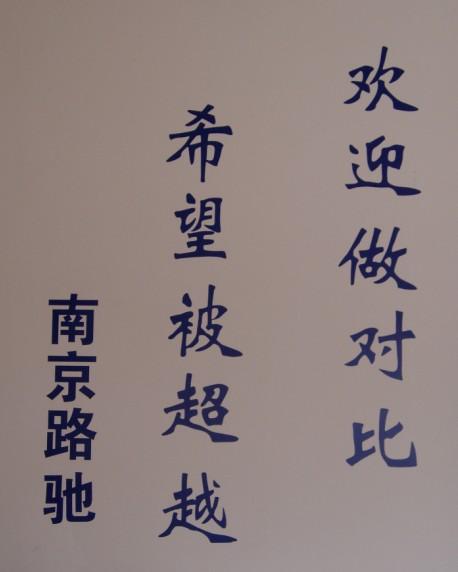 欢迎做对比
希望被超越
南京路驰